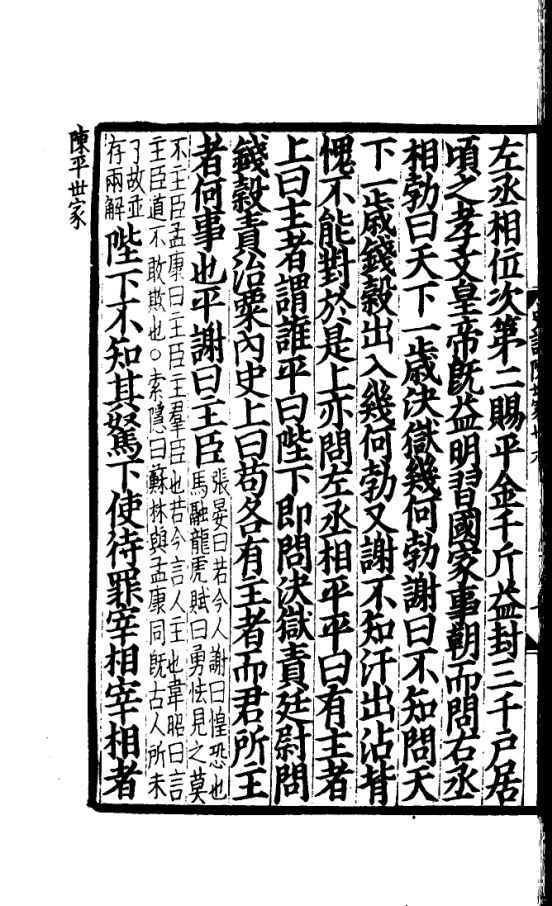 左丞相位次第二賜平金千斤益封三千戶居
頃之孝文皇帝既益明習國家事朝而問右丞
相勃曰天下一歲決獄幾何勃謝曰不知問天
下一歲錢穀出入幾何勃又謝不知汗出沾背
愧不能對於是上亦問左丞相平平曰有主者
上曰主者謂誰平曰陛下即問決獄責廷尉問
錢穀責治粟內史上曰苟各有主者而君所主
者何事也平謝曰主臣
張晏曰若今人謝曰惶恐也
馬融龍虎賦曰勇怯見之莫
不主臣孟康曰主臣主羣臣也若今言人主也韋昭曰言
主臣道不敢欺也○索隱曰蘇林與孟康同既古人所未
了故並
存兩解
陛下不知其駑下使待罪宰相宰相者
陳平世家